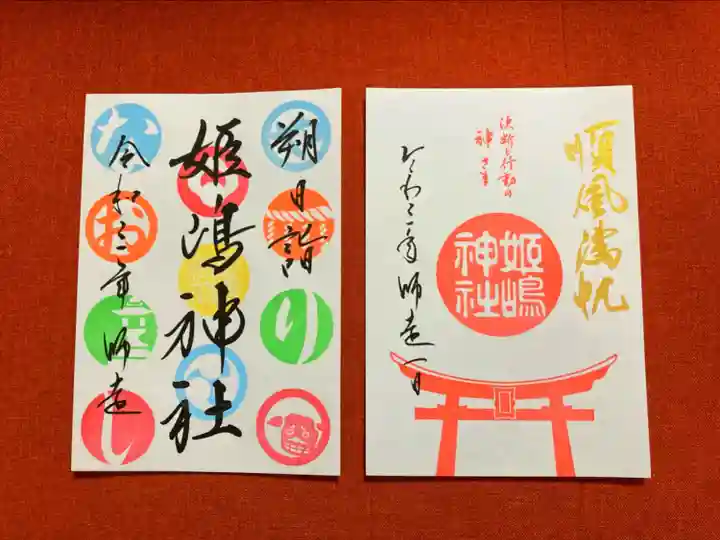 朔日詣
姫嶋神社
令和三年師走
り
な
お
し
順風満帆
決断と行動の
神さま
姫嶋
神社
師走一日